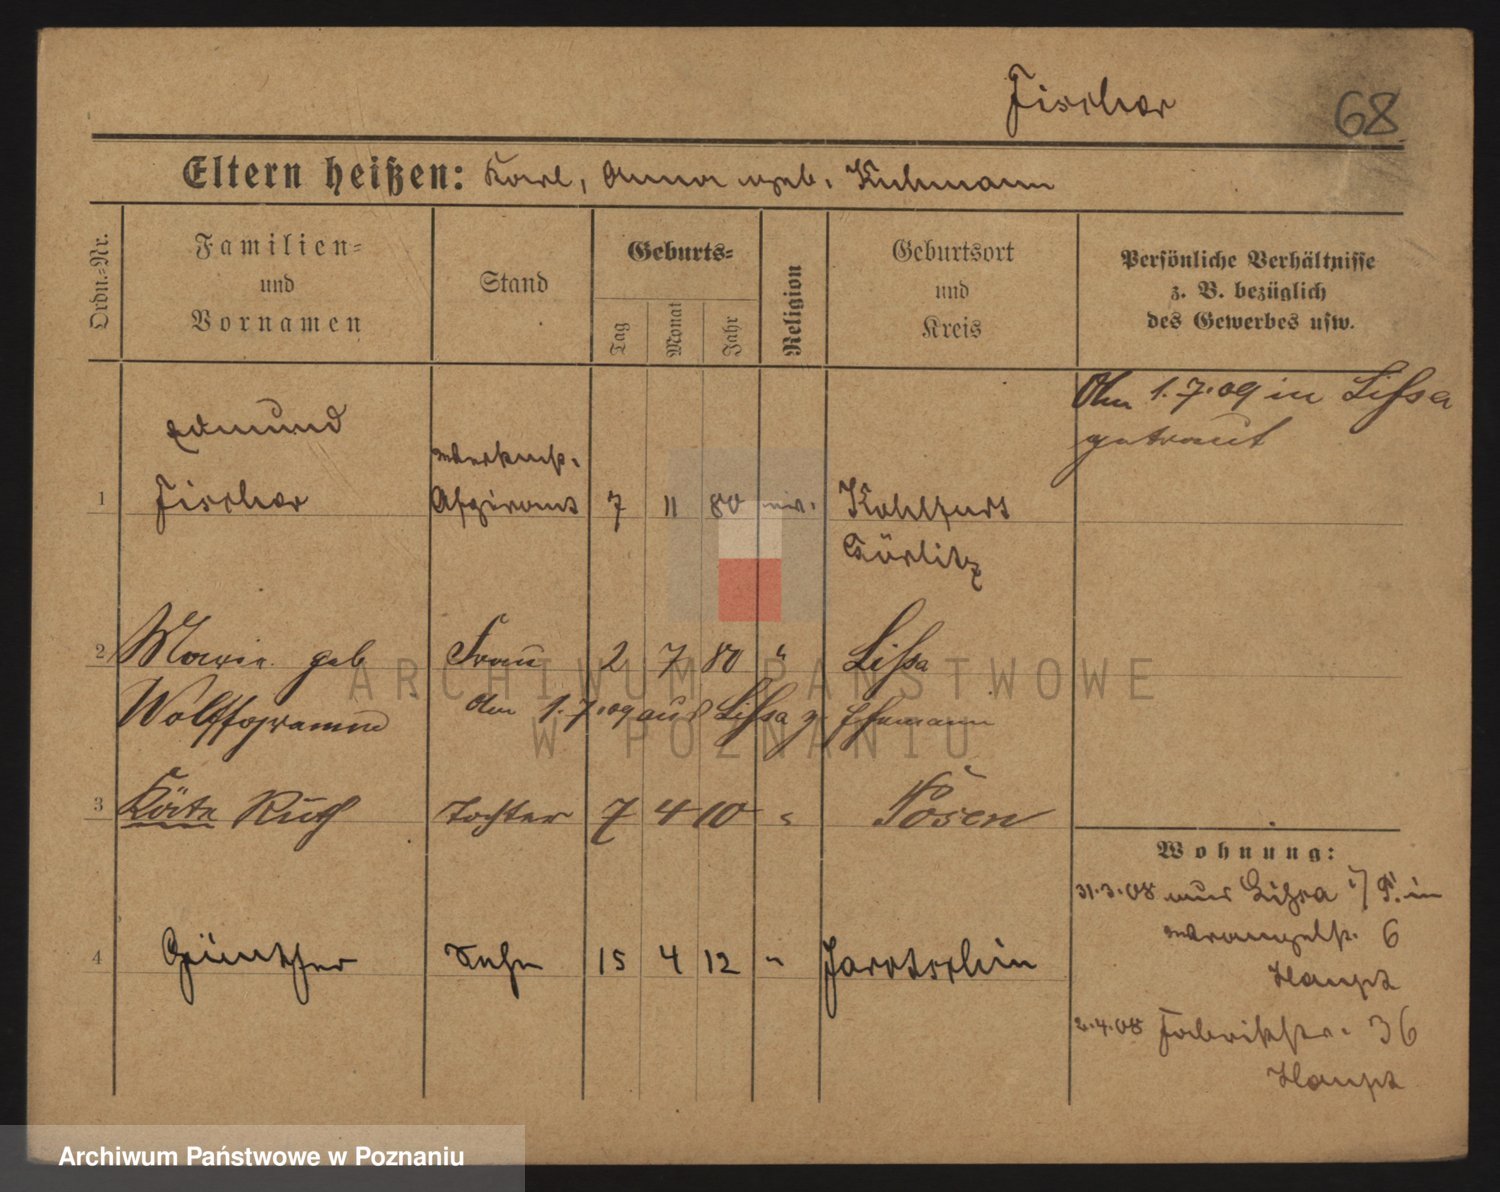 Fischer
68
Eltern heißen: Karl, Anna geb. Kuhmann
Ordn.-Nr.
Familien- und Vornamen
Stand
Geburts-
Tag
Monat
Jahr
Religion
Geburtsort und Kreis
Persönliche Verhältnisse z. B. bezüglich des Gewerbes usw.
Am 1.7.09 in Lissa
getraut
Edmund
1 Fischer 7 11 80 Kohlfurt
Görlitz
2 Marie geb Frau 2 7 80 " Lissa
Wolffgramm am 1.7.09 aus Lissa z. Ehemann
3 Käte Ruth Tochter 7 4 10 " Posen
4 Günther Sohn 15 4 12 " Jarotschin
Wohnung:
31.3.08 aus Lissa i/P. in
Wrangelstr. 6
Haupt
2.4.08 Fabrikstr. 36
Haupt
ARCHIWUM PAŃSTWOWE
W POZNANIU
Archiwum Państwowe w Poznaniu